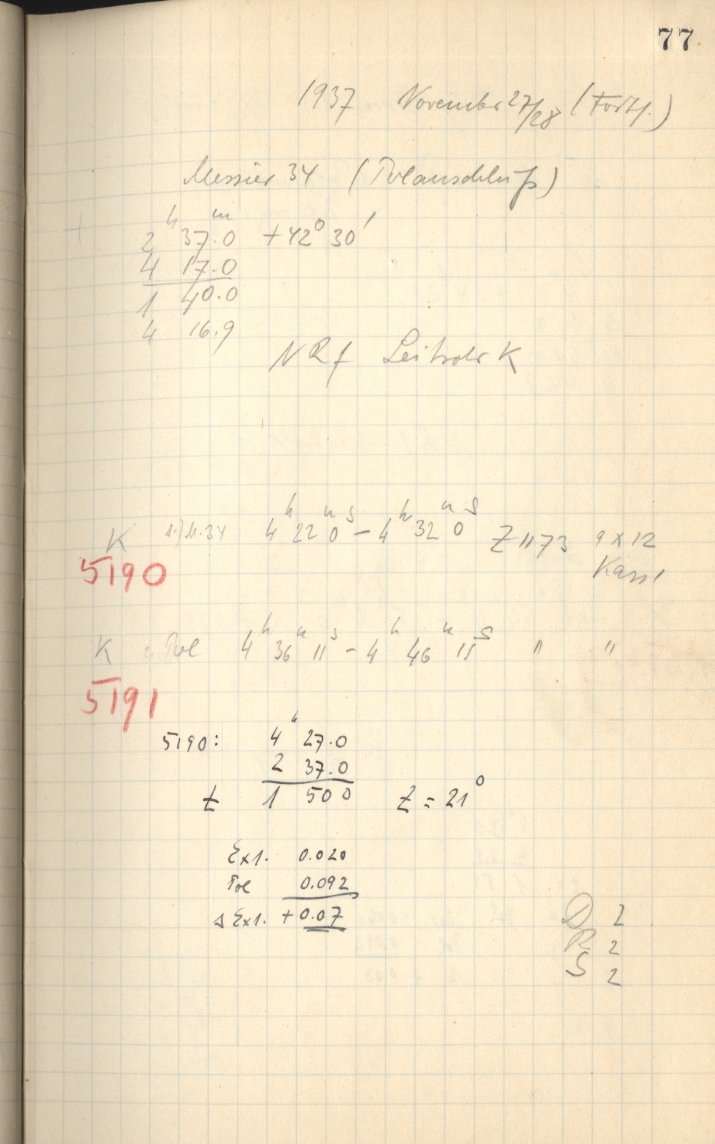 77
1937 November 27/28 (Forts.)
Messier 34 (Polanschluß)
2h 37m.0 +42° 30′
4 17.0
1 40.0
4 16.9
Leitrohr K
K 1.) M.34 4h 22m 0s – 4h 32m 0s Z 1173 9 x 12
5190 Kass.
K Pol 4h 36m 11s – 4h 46m 11s " "
5191
5190: 4h 27.0
2 37.0
t 1 50 0 Z = 21°
Ext. 0.020
Pol 0.092
Δ Ext. +0.07
D 2
R 2
S 2